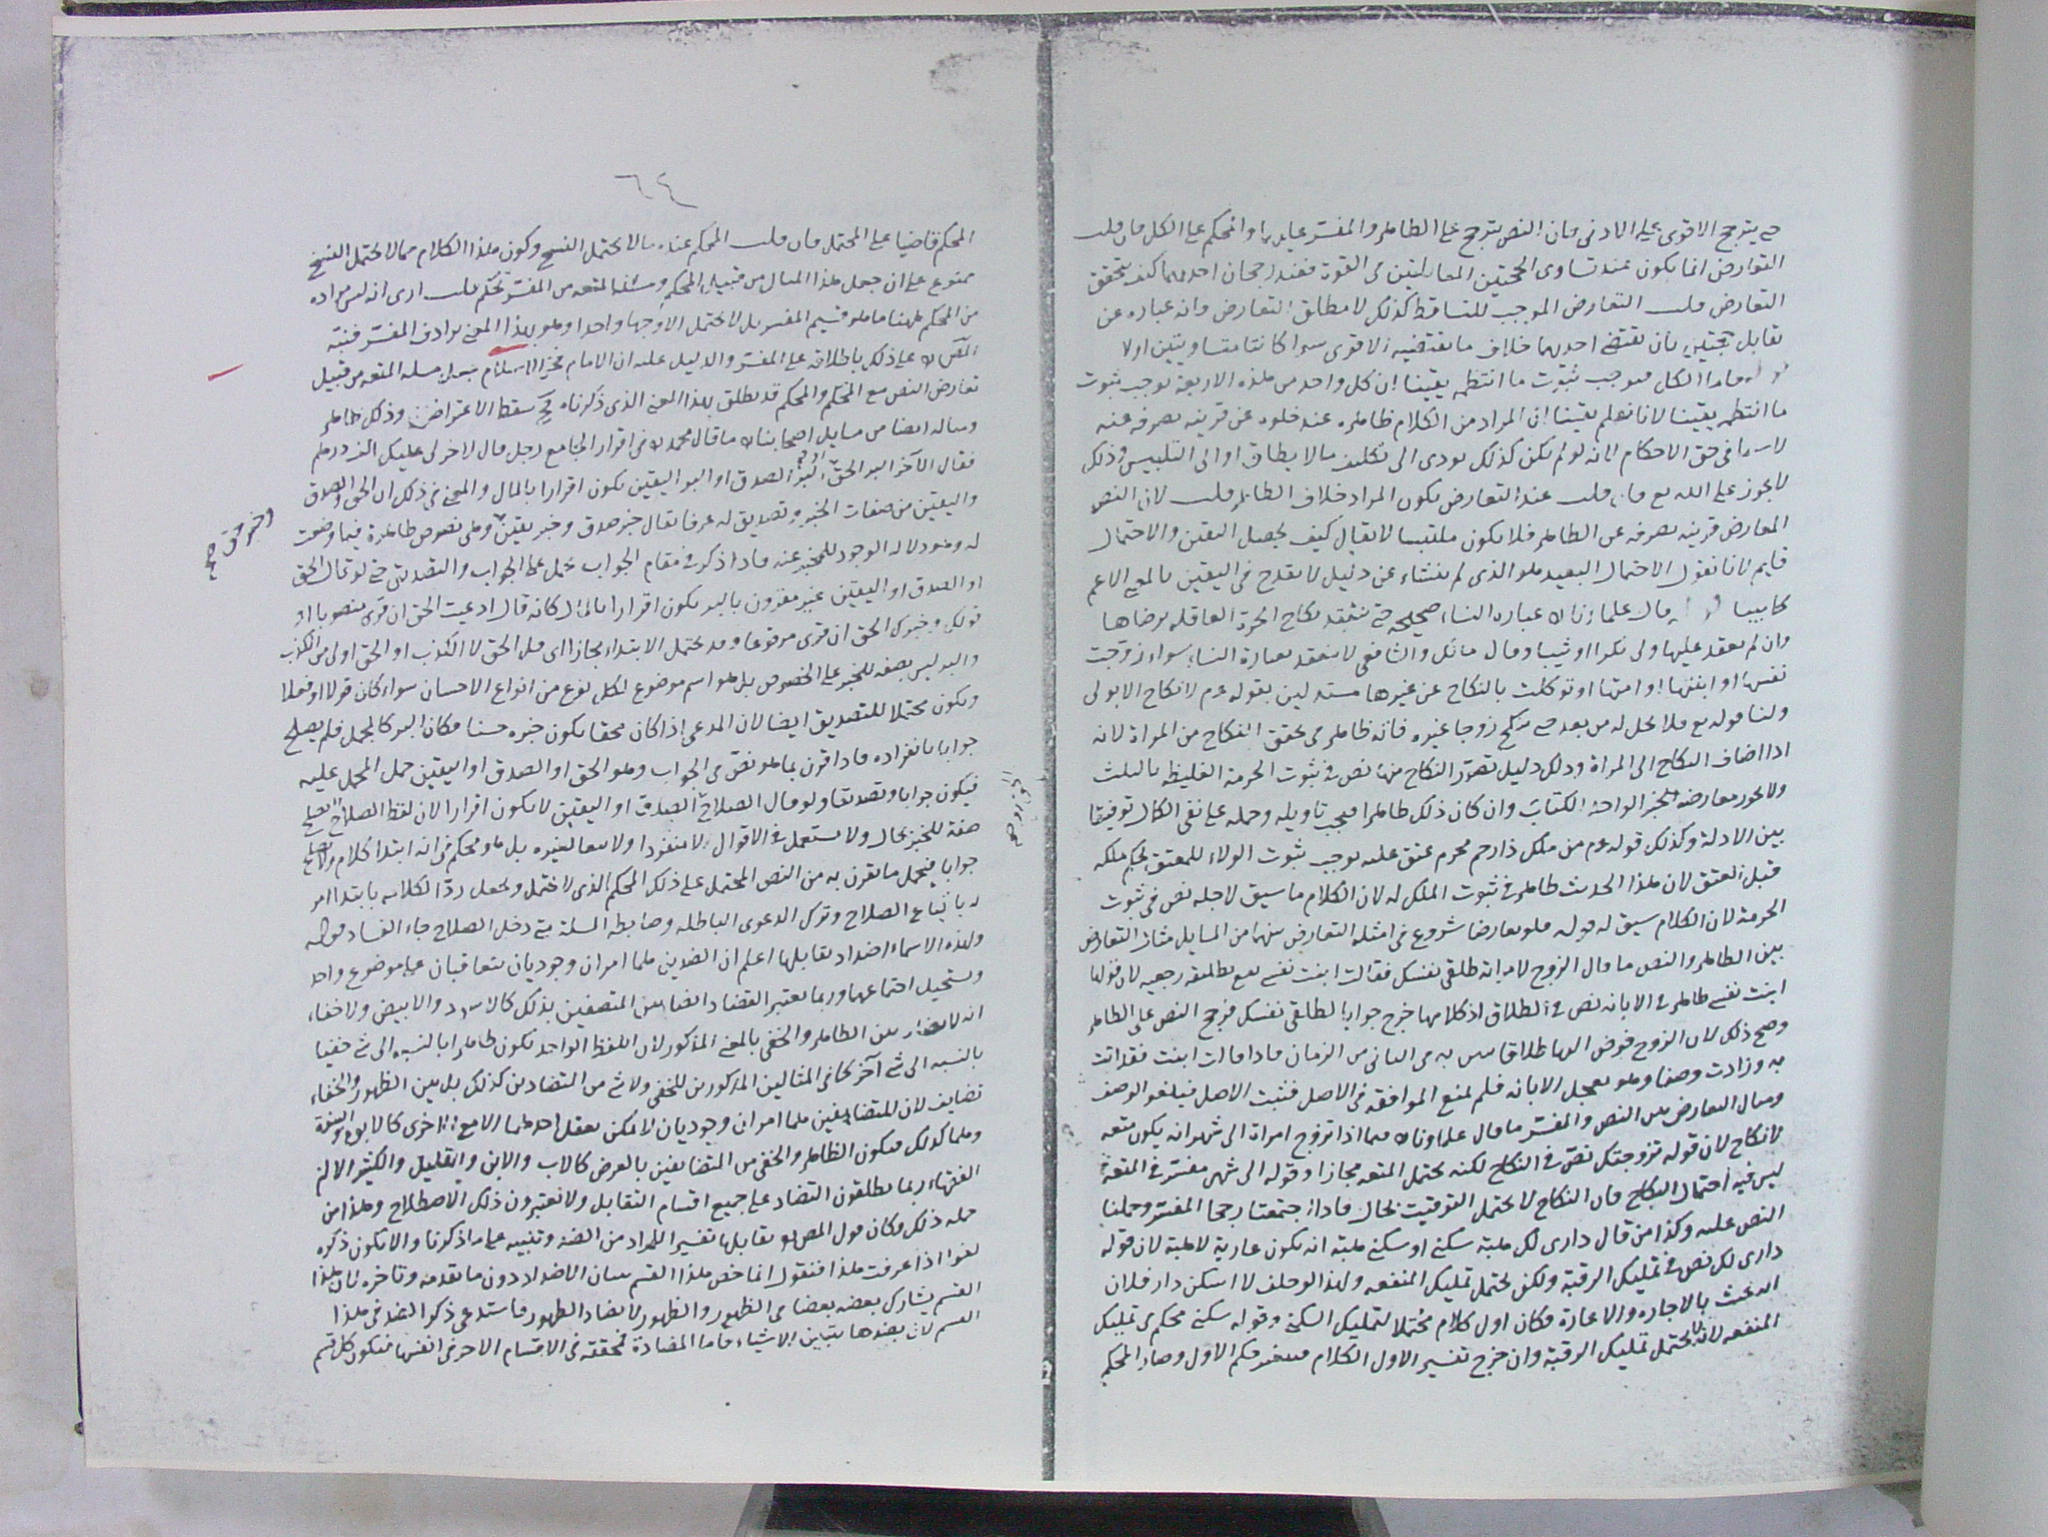 حتى يترجح الاقوى على الادنى فان النص يترجح على الظاهر والمفسر عليهما والمحكم على الكل فان قلت
التعارض انما يكون عند تساوى الحجتين المتقابلتين فى القوة فعند رجحان احديهما كيف يتحقق
التعارض قلت التعارض الموجب للتساقط كذلك لا مطلق التعارض وانه عبارة عن
تقابل حجتين بان تقتضى احديهما خلاف ما تقتضيه الاقوى سواء كانتا متساويتين او لا
قوله واما الكل فيوجب ثبوت ما انتظمه يقينا ان كل واحد من هذه الاربعة يوجب ثبوت
ما انتظمه يقينا لانا نعلم يقينا ان المراد من الكلام ظاهره عند خلوه عن قرينه تصرفه عنه
لا سيما فى حق الاحكام لانه لو لم يكن كذلك يودى الى تكليف مالا يطاق او الى التلبيس وذلك
لا يجوز على الله تع فان قلت عند التعارض يكون المراد خلاف الظاهر قلت لان النص
المعارض قرينه تصرفه عن الظاهر فلا يكون ملتبسا لا يقال كيف يحصل اليقين والاحتمال
قايم لانا نقول الاحتمال البعيد هو الذى لم ينشاء عن دليل لا يقدح فى اليقين بالمعنى الاعم
كما بينا قال علماؤنا عبارة النساء صحيحة حتى ينعقد نكاح الحرة العاقلة برضاها
وان لم يعقد عليها ولى بكرا او ثيبا وقال مالك والشافعى لا ينعقد بعبارة النساء سواء زوجت
نفسها او ابنتها او امتها او توكلت بالنكاح عن غيرها مستدلين بقوله عم لا نكاح الا بولى
ولنا قوله تع فلا تحل له من بعد حتى تنكح زوجا غيره فانه ظاهر فى تحقق النكاح من المراة لانه
اذا اضاف النكاح الى المراة وذلك دليل تصور النكاح منها نص فى ثبوت الحرمة الغليظة بالثلث
ولا يجوز معارضة خبر الواحد الكتاب وان كان ذلك ظاهرا فيجب تاويله وحمله على نفى الكمال توفيقا
بين الادلة وكذلك قوله عم من ملك ذا رحم محرم عتق عليه يوجب ثبوت الولاء للمعتق بحكم ملكه
قبل العتق لان هذا الحديث ظاهر فى ثبوت الملك له لان الكلام ما سيق لاجله نص فى ثبوت
الحرمة لان الكلام سيق له قوله هو تعارضا شروع فى امثلة التعارض منها من المسايل مثال التعارض
بين الظاهر والنص ما قال الزوج لامراته طلقى نفسك فقالت ابنت نفسى يقع تطليقة رجعية لان قولها
ابنت نفسى ظاهر فى الابانة نص فى الطلاق اذ كلامها خرج جوابا لطلقى نفسك فرجح النص على الظاهر
وصح ذلك لان الزوج فوض اليها طلاقا فاذا قالت ابنت فقد اتت
به وزادت وصفا وهو تعجيل الابانة فلم يمنع الموافقة فى الاصل فثبت الاصل فيلغو الوصف
ومثال التعارض بين النص والمفسر ما قال علماؤنا فيما اذا تزوج امراة الى شهر انه يكون متعه
لا نكاح لان قوله تزوجتك نص فى النكاح لكنه يحتمل المتعه مجازا وقوله الى شهر مفسر فى المتعة
ليس فيه احتمال النكاح فان النكاح لا يحتمل التوقيت بحال فاذا اجتمعتا رجحا المفسر وحملنا
النص عليه وكذا من قال دارى لك هبة سكنى او سكنى هبة انه يكون عارية لا هبة لان قوله
دارى لك نص فى تمليك الرقبة ولكن يحتمل تمليك المنفعه ولهذا لو حلف لا اسكن دار فلان
انه يحنث بالاجارة والاعارة فكان اول كلام محتملا لتمليك السكنى وقوله سكنى محكم فى تمليك
المنفعه لانه لا يحتمل تمليك الرقبة وان خرج تفسير الاول الكلام فيتغير حكم الاول وصار المحكم
٦٤
المحكم قاضيا على المحتمل فان قلت المحكم عنده مالا يحتمل النسخ وكون هذا الكلام مما لا يحتمل النسخ
ممنوع على ان جعل هذا المثال من قبيل المحكم ومسئلة المتعه من المفسر تحكم قلت ارى انه ليس مراده
من المحكم ههنا ما هو قسيم المفسر بل لا يحتمل الا وجها واحدا وهو بهذا المعنى يرادف المفسر فنبه
المص على ذلك باطلاقه على المفسر والدليل عليه ان الامام فخر الاسلام جعل مسلة المتعه من قبيل
تعارض النص مع المحكم والمحكم قد يطلق بهذا المعنى الذى ذكرناه سقط الاعتراض وذلك ظاهر
ومثاله ايضا من مسايل اصحابنا ما قال محمد فى اقرار الجامع رجل قال لاخر لى عليك الف درهم
فقال الآخر البر الحق او البر الصدق او البر اليقين يكون اقرارا بالمال والمعنى فى ذلك ان الحق والصدق
واليقين من صفات الخبر وتصديق له عرفا يقال خبر صدق وخبر يقين وهى نصوص ظاهرة فيما وضعت
وخبر حق صح
له وهو دلالة الوجود للمخبر عنه فاذا ذكر فى مقام الجواب حمل على الجواب والتصديق حتى لو قال الحق
او الصدق او اليقين غير مقرون بالبر يكون اقرارا بالمال كانه قال ادعيت الحق ان قرى منصوبا او
قولك وخبرك الحق ان قرى مرفوعا وقد يحتمل الابتداء مجازا اى قل الحق لا الكذب او الحق اولى من الكذب
والبر ليس بصفه للخبر على الخصوص بل هو اسم موضوع لكل نوع من انواع الاحسان سواء كان قولا او فعلا
ويكون محتملا للتصديق ايضا لان المدعى اذا كان محقا يكون خبره حسنا فكان البر كالمجمل فلم يصلح
جوابا بانفراده فاذا اقرن بما هو نص فى الجواب وهو الحق او الصدق او اليقين حمل المجمل عليه
فيكون جوابا وتصديقا ولو قال الصلاح الصدق او اليقين لا يكون اقرارا لان لفظ الصلاح لا يصلح
الحق او صح
صفة للخبر بحال ولا يستعمل فى الاقوال لا منفردا ولا تبعا لغيره بل هو محكم فى انه ابتداء كلام ولا يصلح
جوابا فيحمل ما يقرن به من النص المحتمل على ذلك المحكم الذى لا يحتمل ويجعل ردا لكلامه بابتداء امر
له باتباع الصلاح وترك الدعوى الباطله وضابطه المسلة متى دخل الصلاح جاء الفساد قوله
ولهذه الاسماء اضداد يقابلها اعلم ان الضدين هما امران وجوديان يتعاقبان على موضوع واحد
ويستحيل اجتماعهما وربما يعتبر التضاد ايضا بين المتصفين بذلك كالاسود والابيض ولا خفاء
انه لا تضاد بين الظاهر والخفى بالمعنى المذكور لان اللفظ الواحد يكون ظاهرا بالنسبه الى شئ خفيا
بالنسبه الى شئ آخر كما فى المثالين المذكورين للخفى ولا شئ من التضادين كذلك بل بين الظهور والخفاء
تضايف لان المتضايفين هما امران وجوديان لا يمكن تعقل احدهما الا مع الاخرى كالابوة والبنوة
وهما كذلك فيكون الظاهر والخفى من المتضايفين بالعرض كالاب والابن والقليل والكثير الا ان
الفقهاء ربما يطلقون التضاد على جميع اقسام التقابل ولا يعتبرون ذلك الاصطلاح وهذا من
جملة ذلك وكان قول المص يقابلها تفسير للمراد من الضد وتنبيه على ما ذكرنا والا يكون ذكره
لغوا اذا عرفت هذا فنقول انما خص هذا القسم ببيان الاضداد دون ما تقدمه وتاخره لان هذا
القسم يشارك بعضه بعضا فى الظهور والظهور لا يضاد الظهور فاستدعى ذكر الضد فى هذا
القسم لان بضدها يتبين الاشياء فاما المضادة محققة فى الاقسام الاخر فى انفسها فيكون كل قسم